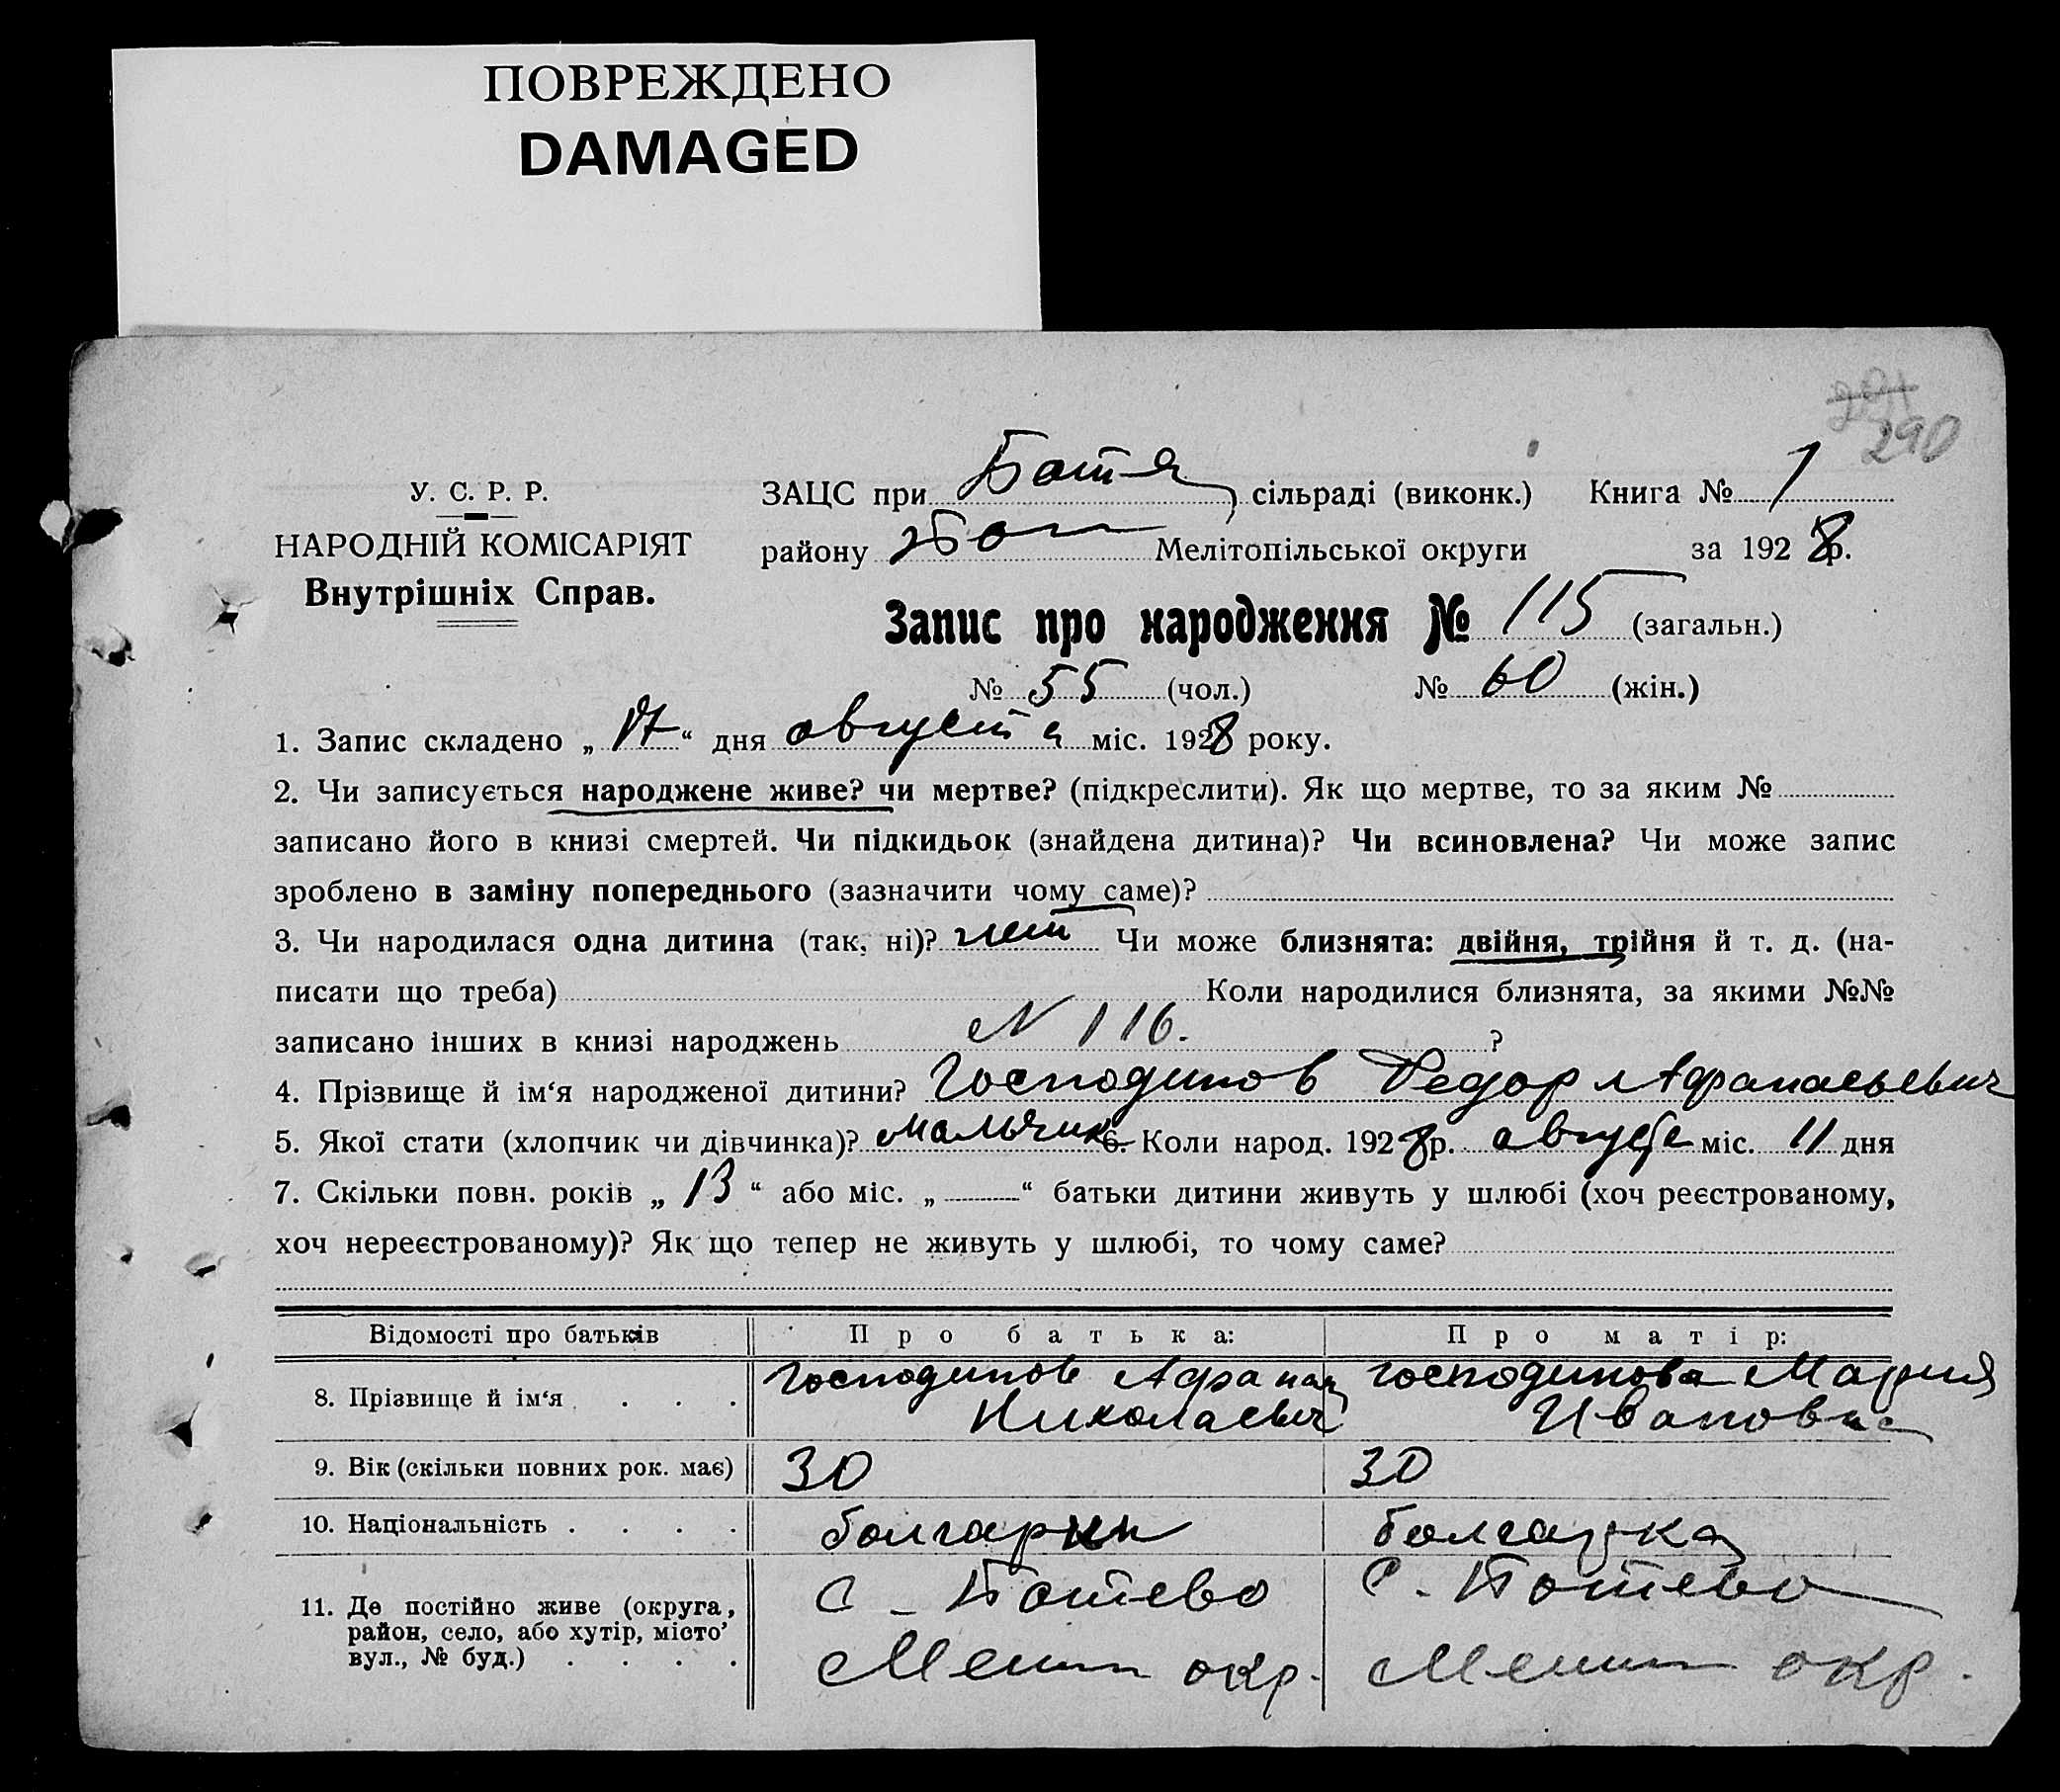 ПОВРЕЖДЕНО
DAMAGED
290
У. С. Р. Р.
НАРОДНІЙ КОМІСАРІЯТ
Внутрішніх Справ.
ЗАЦС при сільраді (виконк.) Книга № 1
району Бот Мелітопільської округи за 1928 р.
Запис про народження № 115 (загальн.)
№ 55 (чол.) № 60 (жін.)
1. Запис складено „ 17 “ дня августа міс. 1928 року.
2. Чи записується народжене живе? чи мертве? (підкреслити). Як що мертве, то за яким №
записано його в книзі смертей. Чи підкидьок (знайдена дитина)? Чи всиновлена? Чи може запис
зроблено в заміну попереднього (зазначити чому саме)?
3. Чи народилася одна дитина (так, ні)? нет Чи може близнята: двійня, трійня й т. д. (на-
писати що треба) Коли народилися близнята, за якими №№
записано інших в книзі народжень N 116. ?
4. Прізвище й ім‘я народженої дитини? Господинов Федор Афанасьевич
5. Якої стати (хлопчик чи дівчинка)? мальчик 6. Коли народ. 1928 р. августа міс. 11 дня
7. Скільки повн. років „ 13 “ або міс. „ “ батьки дитини живуть у шлюбі (хоч реєстрованому,
хоч нереєстрованому)? Як що тепер не живуть у шлюбі, то чому саме?
Відомості про батьків Про батька: Про матір:
8. Прізвище й ім‘я . . . Господинов Афанас Николаевич Господинова Мария Ивановна
9. Вік (скільки повних рок. має) 30 30
10. Національність . . . . болгарин болгарка
11. Де постійно живе (округа, район, село, або хутір, місто’ вул., № буд.) . . . . С - Ботево Мелит окр. С. Ботево Мелит окр.